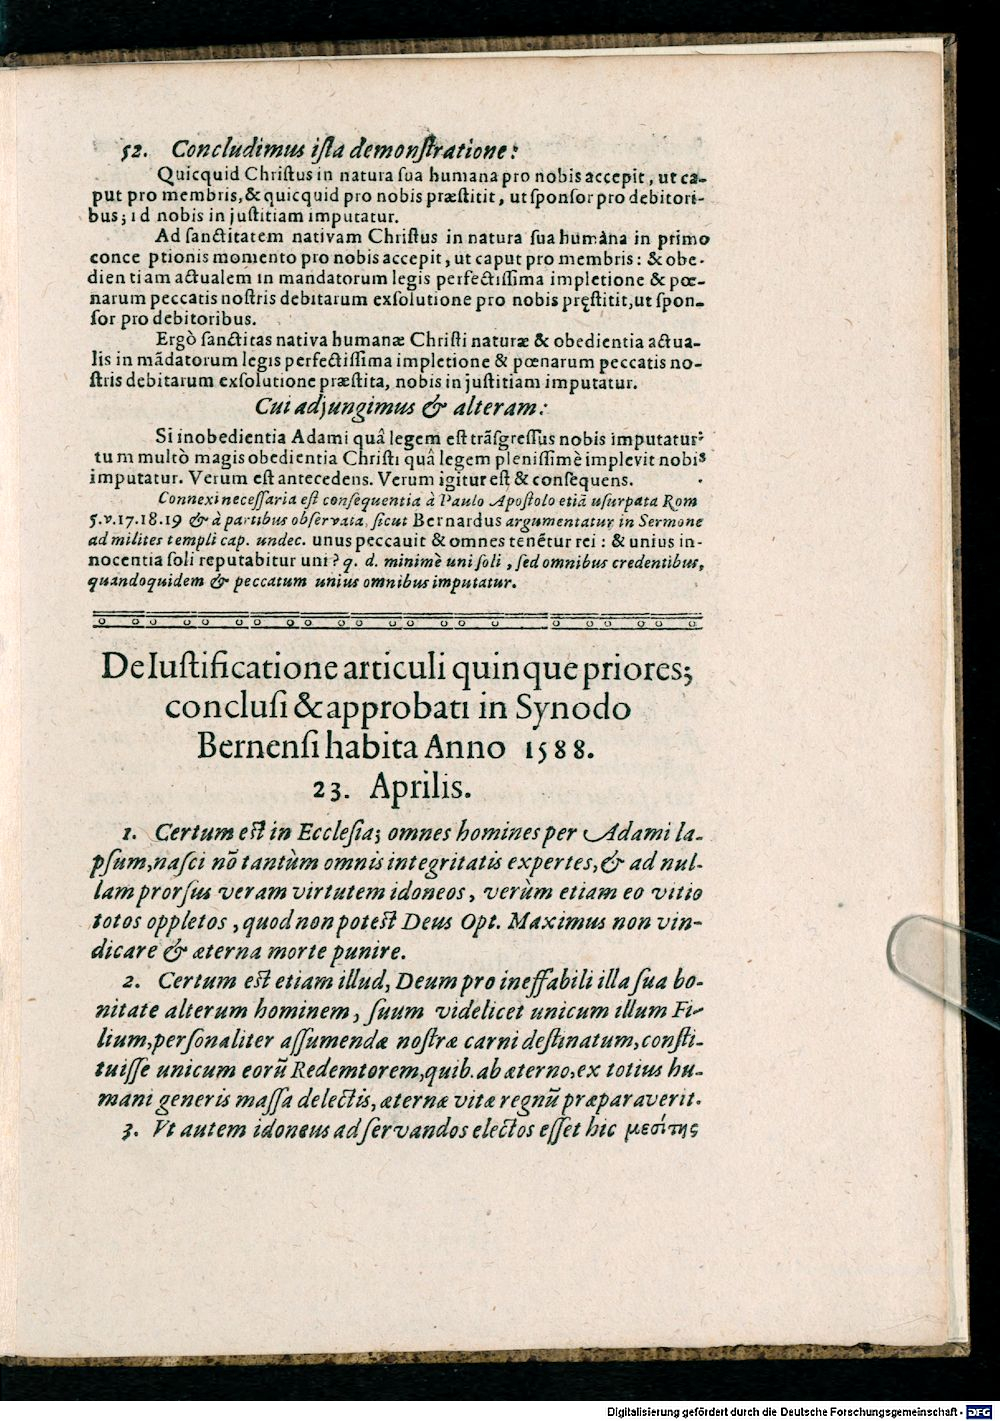 52. Concludimus iſta demonſtratione:
Quicquid Chriſtus in natura ſua humana pro nobis accepit, ut ca-
put pro membris, & quicquid pro nobis præſtitit, ut ſponſor pro debitori-
bus; id nobis in juſtitiam imputatur.
Ad ſanctitatem nativam Chriſtus in natura ſua humàna in primo
conce ptionis momento pro nobis accepit, ut caput pro membris: & obe-
dien tiam actualem in mandatorum legis perfectiſſima impletione & pœ-
narum peccatis noſtris debitarum exſolutione pro nobis pręſtitit, ut ſpon-
ſor pro debitoribus.
Ergò ſanctitas nativa humanæ Chriſti naturæ & obedientia actua-
lis in mãdatorum legis perfectiſſima impletione & pœnarum peccatis no-
ſtris debitarum exſolutione præſtita, nobis in juſtitiam imputatur.
Cui adjungimus & alteram:
Si inobedientia Adami quâ legem eſt trãſgreſſus nobis imputatur:
tum multò magis obedientia Chriſti quâ legem pleniſſimè implevit nobis
imputatur. Verum eſt antecedens. Verum igitur eſt & conſequens.
Connexi neceſſaria eſt conſequentia à Paulo Apoſtolo etiã uſurpata Rom
5.v.17.18.19 & à partibus obſervata, ſicut Bernardus argumentatur in Sermone
ad milites templi cap. undec. unus peccauit & omnes tenẽtur rei: & unius in-
nocentia ſoli reputabitur uni? q. d. minimè uni ſoli, ſed omnibus credentibus,
quandoquidem & peccatum unius omnibus imputatur.
De Iuſtificatione articuli quinque priores;
concluſi & approbati in Synodo
Bernenſi habita Anno 1588.
23. Aprilis.
1. Certum eſt in Eccleſia; omnes homines per Adami la-
pſum, naſci nõ tantùm omnis integritatis expertes, & ad nul-
lam prorſus veram virtutem idoneos, verùm etiam eo vitio
totos oppletos, quod non poteſt Deus Opt. Maximus non vin-
dicare & æterna morte punire.
2. Certum eſt etiam illud, Deum pro ineffabili illa ſua bo-
nitate alterum hominem, ſuum videlicet unicum illum Fi-
lium, perſonaliter aſſumendæ noſtræ carni deſtinatum, conſti-
tuiſſe unicum eorũ Redemtorem, quib. ab æterno, ex totius hu-
mani generis maſſa delectis, æternæ vitæ regnũ præparaverit.
3. Vt autem idoneus ad ſervandos electos eſſet hic μεσίτης
Digitalisierung gefördert durch die Deutsche Forschungsgemeinschaft - DFG